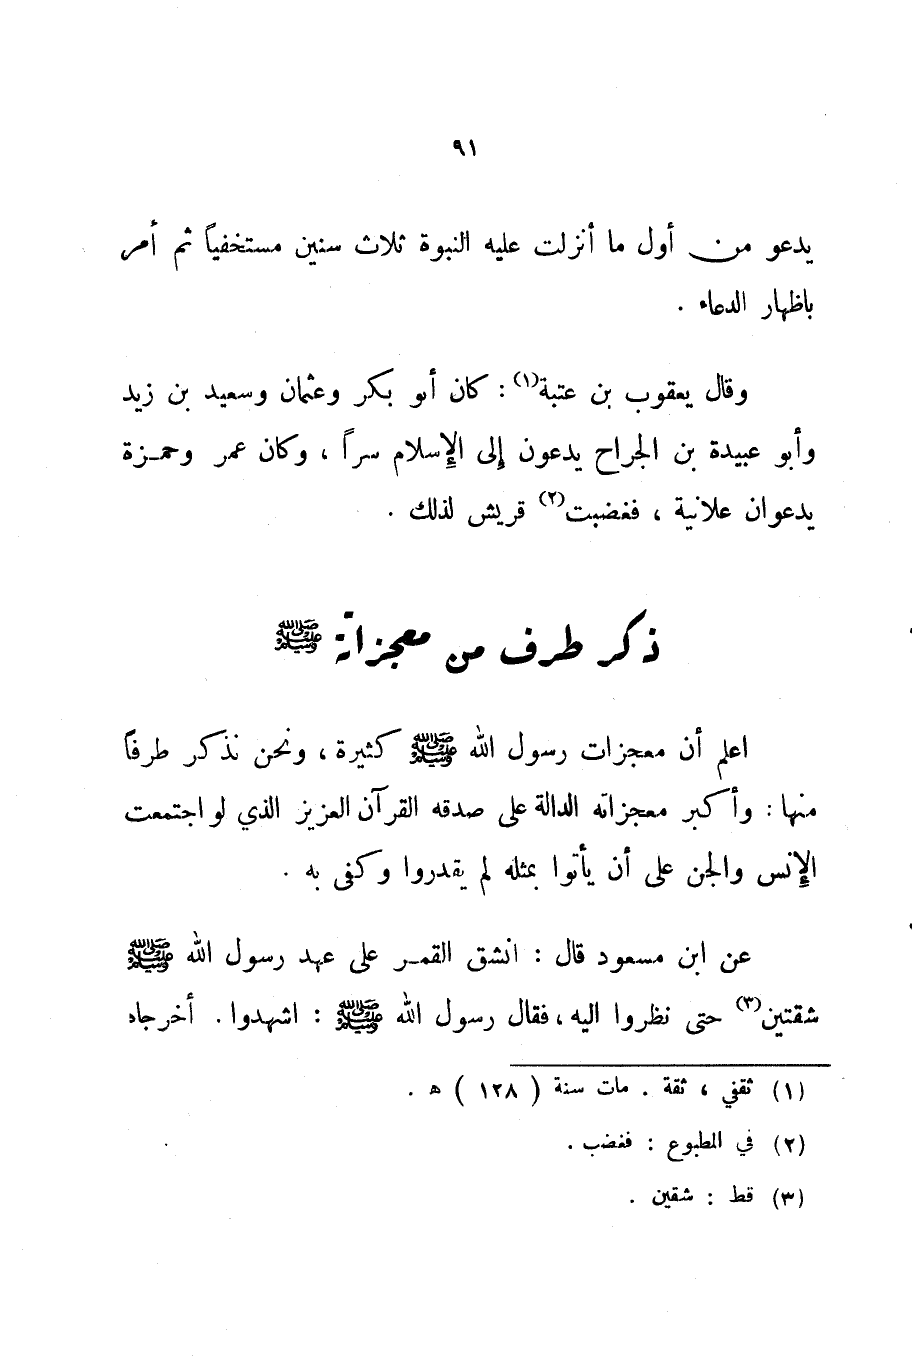 ٩١
يدعو من أول ما أنزلت عليه النبوة ثلاث سنين مستخفياً ثم أمر
باظهار الدعاء .
وقال يعقوب بن عتبة(١) : كان أبو بكر وعثمان وسعيد بن زيد
وأبو عبيدة بن الجراح يدعون إلى الإسلام سراً ، وكان عمر وحمـزة
يدعوان علانية ، فغضبت(٢) قريش لذلك .
ذكر طرف من معجزاته ﷺ
اعلم أن معجزات رسول الله ﷺ كثيرة ، ونحن نذكر طرفاً
منها : وأكبر معجزاته الدالة على صدقه القرآن العزيز الذي لو اجتمعت
الإنس والجن على أن يأتوا بمثله لم يقدروا وكفى به .
عن ابن مسعود قال : انشق القمـر على عهد رسول الله ﷺ
شقتين(٣) حتى نظروا اليه ، فقال رسول الله ﷺ : اشهدوا . أخرجاه
(١) ثقفي ، ثقة . مات سنة ( ١٢٨ ) ه .
(٢) في المطبوع : فغضب .
(٣) قط : شقين .